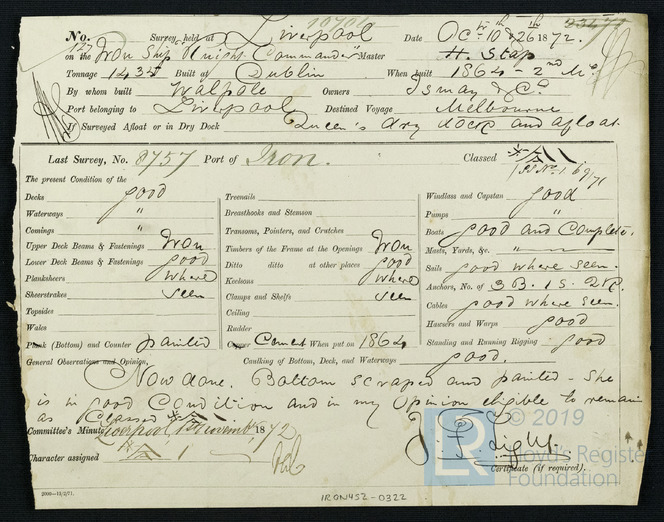 10701
No. 127 Survey held at Liverpool Date Oct 10th & 26th 1872.
on the Iron Ship "Knight Commander" Master H. Stap
Tonnage 1435 Built at Dublin When built 1864 - 2nd Mo.
By whom built Walpole Owners Ismay & Co.
Port belonging to Liverpool Destined Voyage Melbourne
If Surveyed Afloat or in Dry Dock Queen's dry dock and afloat.
Last Survey, No. 8757 Port of Iron. Classed
The present Condition of the
Decks good
Waterways "
Comings "
Upper Deck Beams & Fastenings Iron
Lower Deck Beams & Fastenings good
Planksheers where
Sheerstrakes seen
Topsides
Wales
Plank (Bottom) and Counter painted
Treenails
Breasthooks and Stemson
Transoms, Pointers, and Crutches
Timbers of the Frame at the Openings Iron
Ditto ditto at other places good
Keelsons where
Clamps and Shelfs seen
Ceiling
Rudder
Cement When put on 1864
Windlass and Capstan good
Pumps "
Boats good and Complete.
Masts, Yards, &c. "
Sails good where seen.
Anchors, No. of 3 B. 1 S. 2 K.
Cables good where seen.
Hawsers and Warps good
Standing and Running Rigging good
General Observations and Opinion, Caulking of Bottom, Deck, and Waterways good.
Now done. Bottom scraped and painted - She
is in good Condition and in my Opinion eligible to remain
as Classed
Committee's Minute Liverpool 1st November 1872
Character assigned
J. F. Light.
Certificate (if required).
2000-13/2/71.
IRON452-0322
© 2019
LR
Lloyd's Register
Foundation